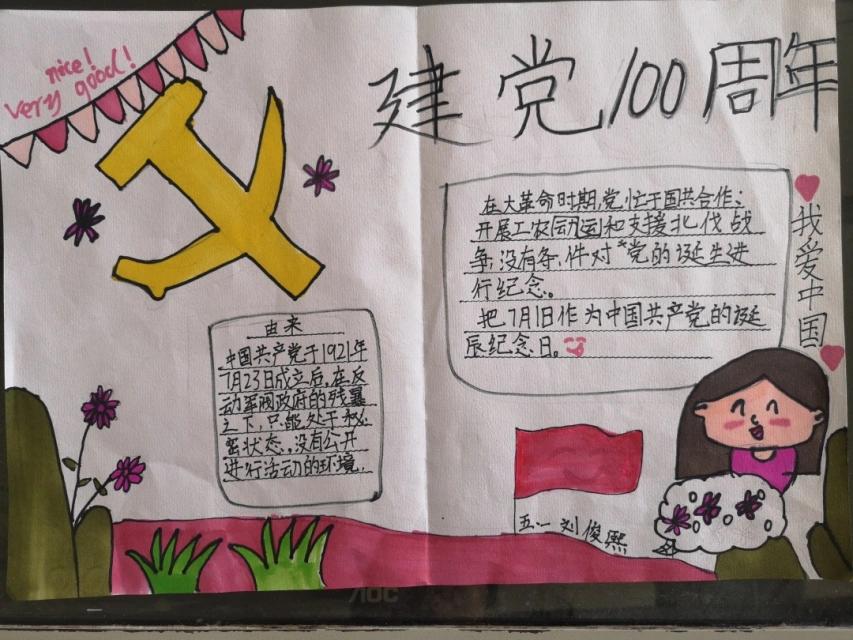 nice!
very good!
建党100周年
在大革命时期,党忙于国共合作;
开展工农运动和支援北伐战
争;没有条件对党的诞生进
行纪念。
把7月1日作为中国共产党的诞
辰纪念日。
我爱中国
由来
中国共产党于1921年
7月23日成立后,在反
动军阀政府的残暴
之下,只能处于秘
密状态,没有公开
进行活动的环境.
五.一 刘俊熙
AOC